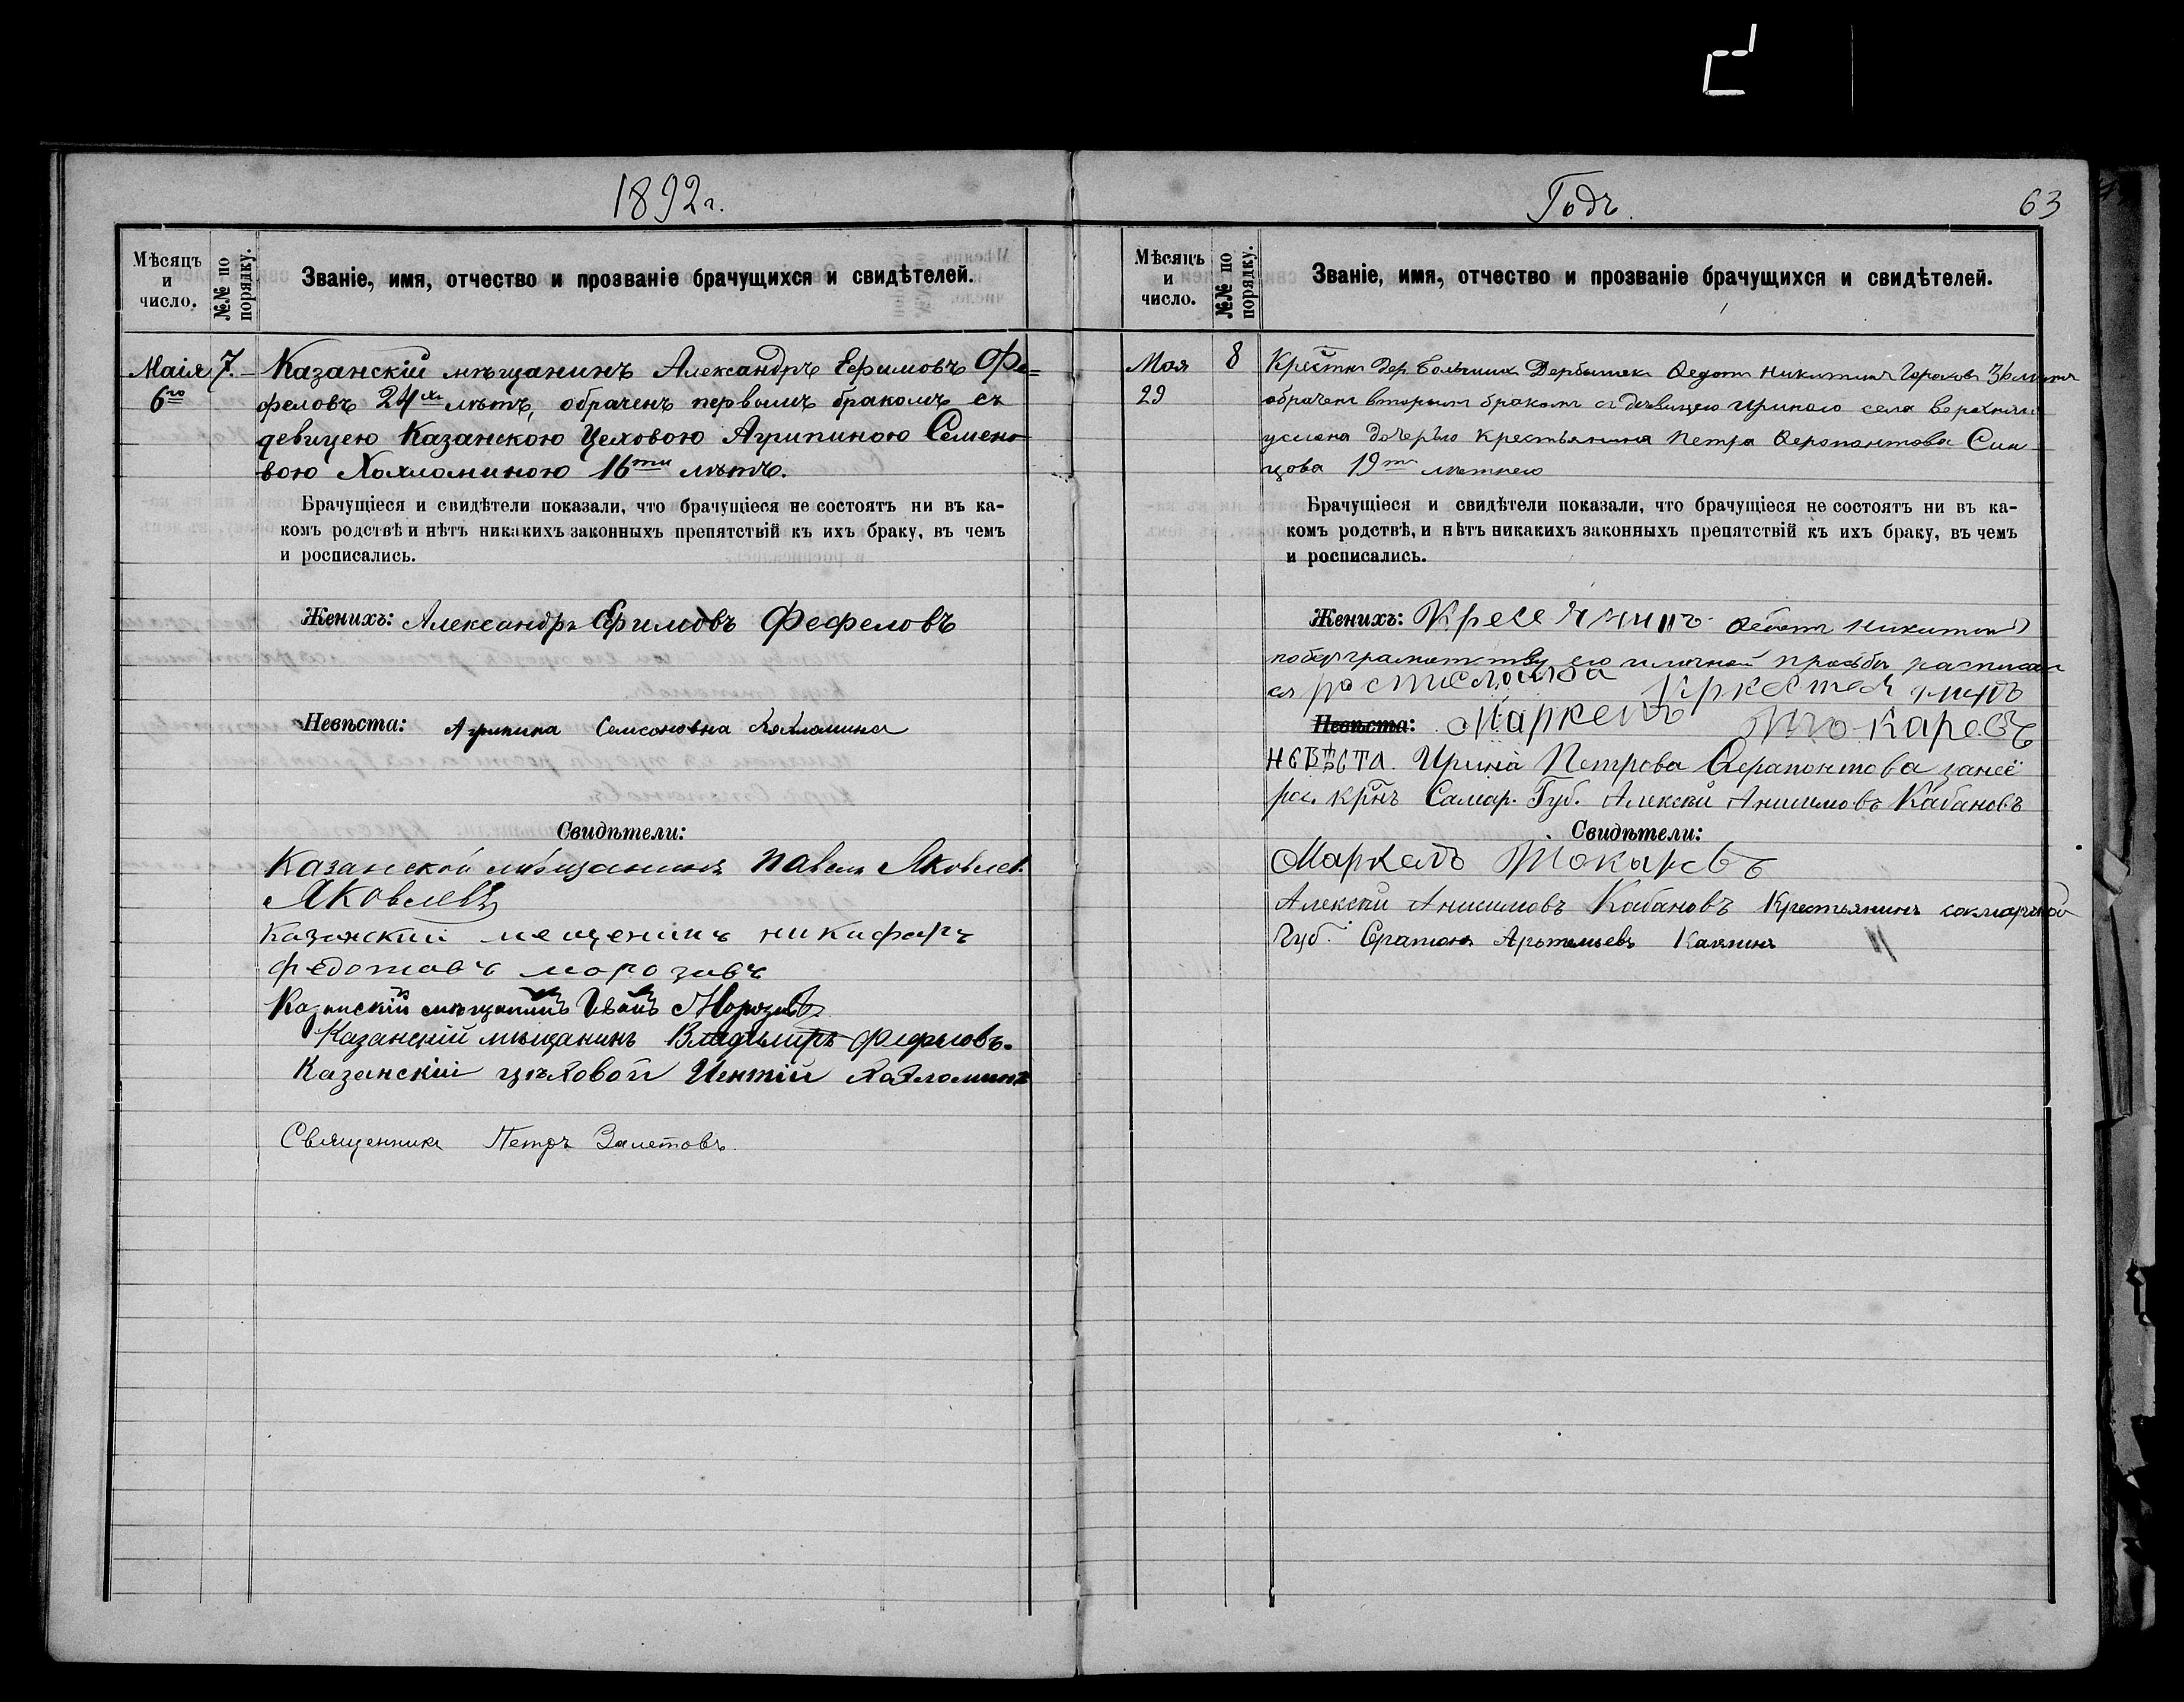 1892 г.
Мѣсяцъ и число.
№№ по порядку.
Званіе, имя, отчество и прозваніе брачущихся и свидѣтелей.
Маія 7. Казанскій мѣщанинъ Александръ Ефимовъ Фе=
6го феловъ 24хъ лѣтъ, обраченъ первымъ бракомъ съ
девицею Казанскою Цеховою Агрипиною Семено-
вою Хохломиною 16ти лѣтъ.
Брачущіеся и свидѣтели показали, что брачущіеся не состоятъ ни въ ка-
комъ родствѣ и нѣтъ никакихъ законныхъ препятствій къ ихъ браку, въ чемъ
и росписались.
Женихъ: Александръ Ефимовъ Фефеловъ
Невѣста: Агрипина Семсоновна Хохломина
Свидѣтели:
Казанской мѣщанинъ Павелъ Яковлев.
Яковлевъ
Казанский мещенинъ никифаръ
федотавъ морозавъ
Казанскій мѣщанинъ Иванъ Морозовъ
Казанскій мѣщанинъ Владимиръ Фефеловъ.
Казанскій цѣховой Иентій Хохломинъ
Священникъ Петръ Залетовъ.
Годъ.
63
Мѣсяцъ и число.
№№ по порядку.
Званіе, имя, отчество и прозваніе брачущихся и свидѣтелей.
Мая 8 Крестнъ Дер. Большихъ Дербышек Ѳедотъ Никитинъ Гороховъ
29 обраченъ вторымъ бракомъ съ дѣвицею Ириною села верхняго
услона дочерью крестьянина Петра Ѳеропонтова Син-
цова 19ти летнею
Брачущіеся и свидѣтели показали, что брачущіеся не состоятъ ни въ ка-
комъ родствѣ, и нѣтъ никакихъ законныхъ препятствій къ ихъ браку, въ чемъ
и росписались.
Женихъ: Кресенинъ Ѳедотъ Никитин
по безграмотству его и личной просьбы расписал
ся
Невѣста: Маркелъ Токаревъ
Невѣста. Ирина Петрова Ѳерапонтова за неё
рос. крнъ Самар. Губ. Алексѣй Анисимовъ Кабановъ
Свидѣтели:
Маркелъ Токаревъ
Алексѣй Анисимовъ Кабановъ Крестьянинъ самарской
Губ. Ератонъ Артемьевъ